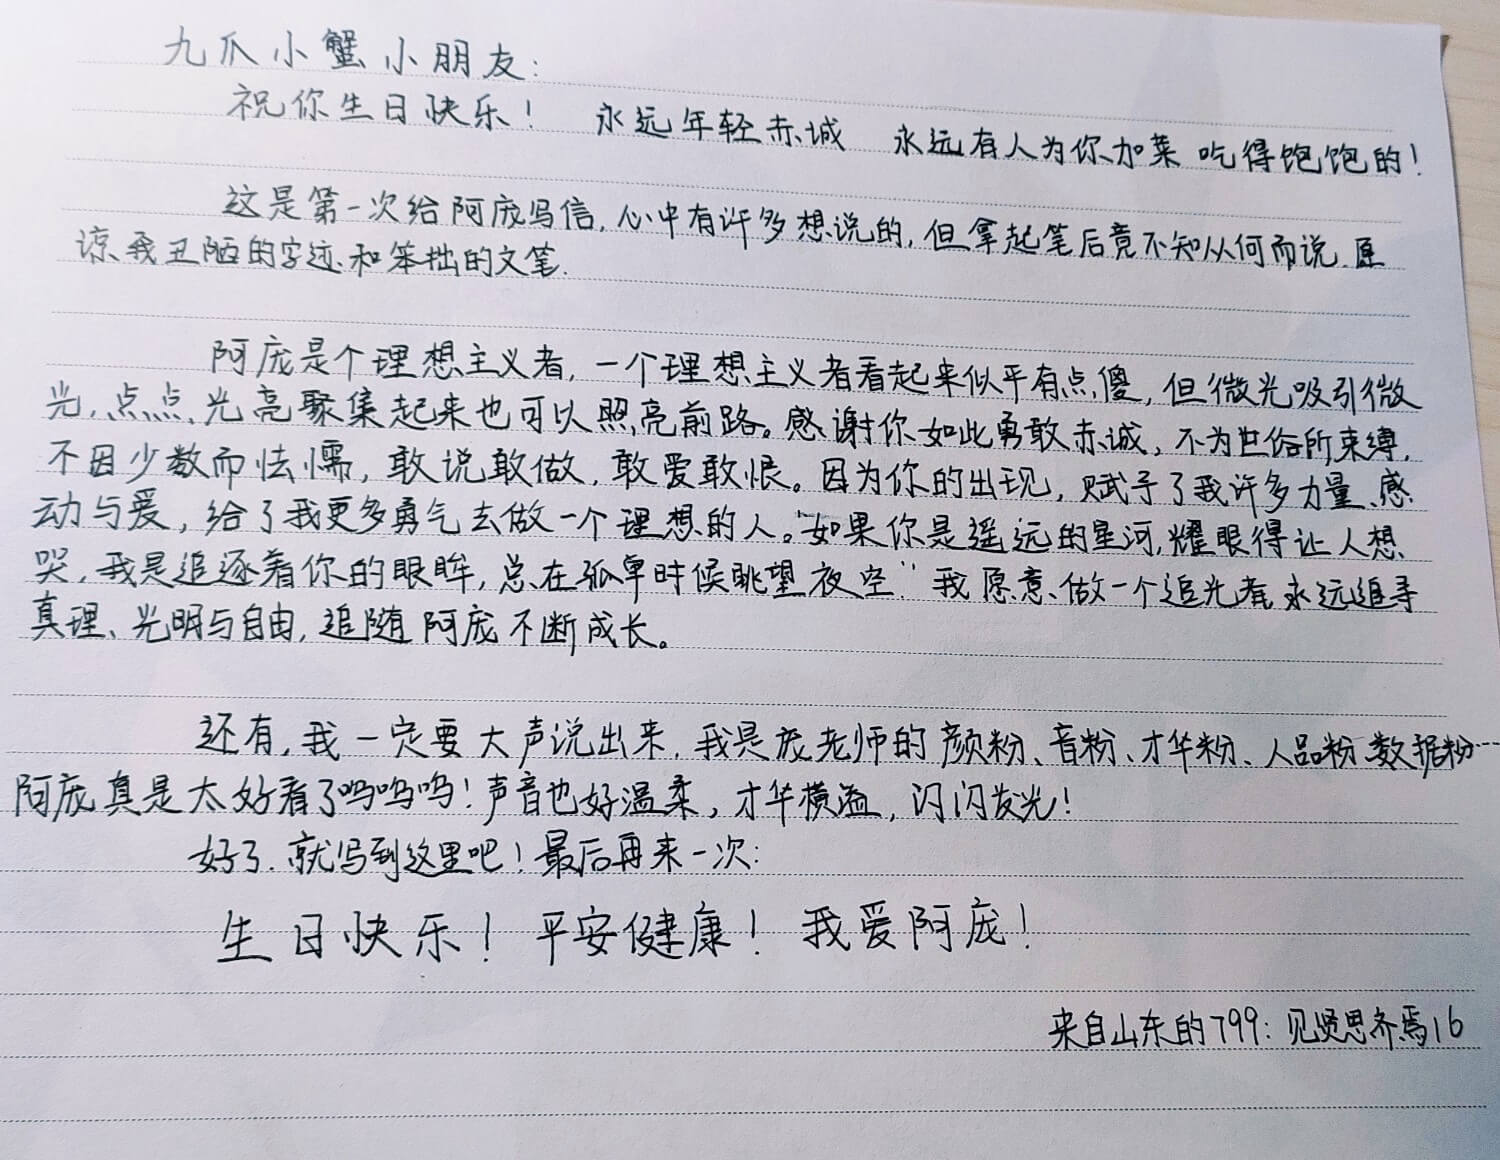 九爪小蟹小朋友:
祝你生日快乐! 永远年轻赤诚 永远有人为你加菜 吃得饱饱的!
这是第一次给阿庞写信,心中有许多想说的,但拿起笔后竟不知从何而说.原
谅我丑陋的字迹和笨拙的文笔.
阿庞是个理想主义者,一个理想主义者看起来似乎有点傻,但微光吸引微
光,点点光亮聚集起来也可以照亮前路。感谢你如此勇敢赤诚,不为世俗所束缚,
不因少数而怯懦,敢说敢做,敢爱敢恨。因为你的出现,赋予了我许多力量、感
动与爱,给了我更多勇气去做一个理想的人。"如果你是遥远的星河,耀眼得让人想
哭,我是追逐着你的眼眸,总在孤单时候眺望夜空."我愿意做一个追光者,永远追寻
真理、光明与自由,追随阿庞不断成长。
还有,我一定要大声说出来,我是庞老师的颜粉、音粉、才华粉、人品粉、数据粉…
阿庞真是太好看了呜呜呜!声音也好温柔,才华横溢,闪闪发光!
好了.就写到这里吧!最后再来一次:
生日快乐!平安健康!我爱阿庞!
来自山东的799:见贤思齐焉16